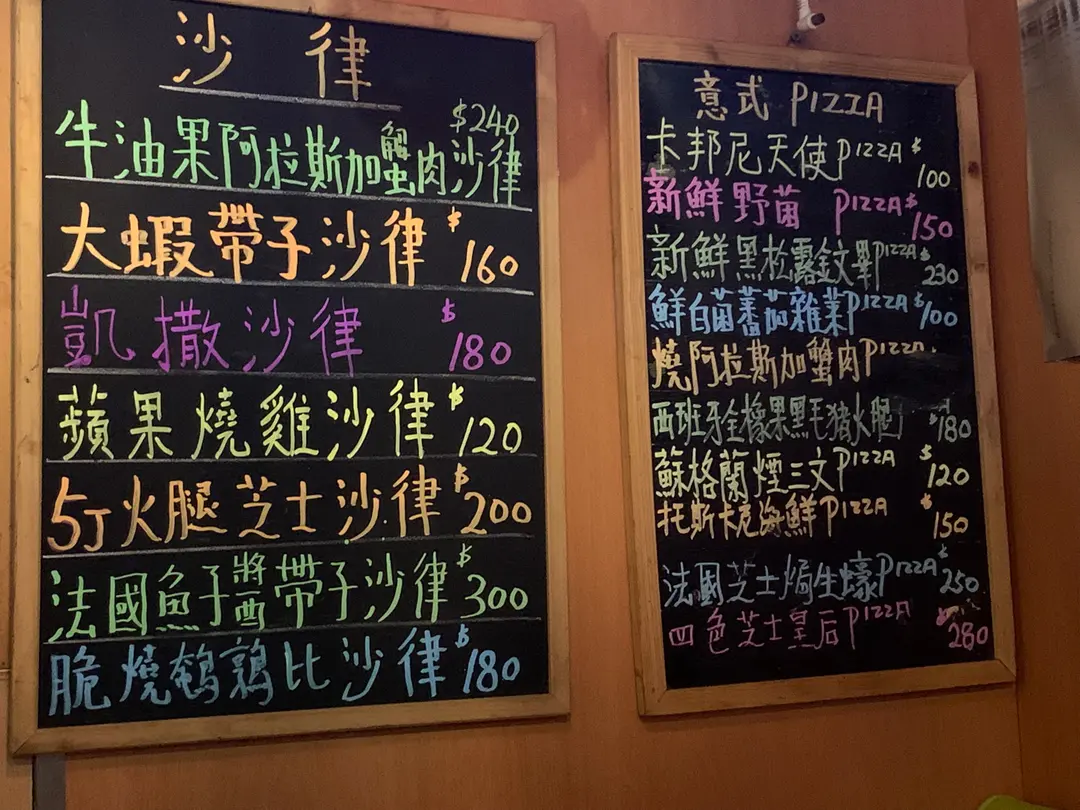 沙律
牛油果阿拉斯加蟹肉沙律 $240
大蝦帶子沙律 $160
凱撒沙律 $180
蘋果燒雞沙律 $120
5J火腿芝士沙律 $200
法國魚子醬帶子沙律 $300
脆燒鵪鶉比沙律 $180
意式 PIZZA
卡邦尼天使PIZZA $100
新鮮野菌 PIZZA $150
新鮮黑松露 PIZZA $230
鮮白菌蕃茄雜菜PIZZA $100
燒阿拉斯加蟹肉PIZZA
西班牙全橡果黑毛豬火腿 $180
蘇格蘭煙三文PIZZA $120
托斯卡尼海鮮PIZZA $150
法國芝士焗生蠔PIZZA $250
四色芝士皇后PIZZA $280